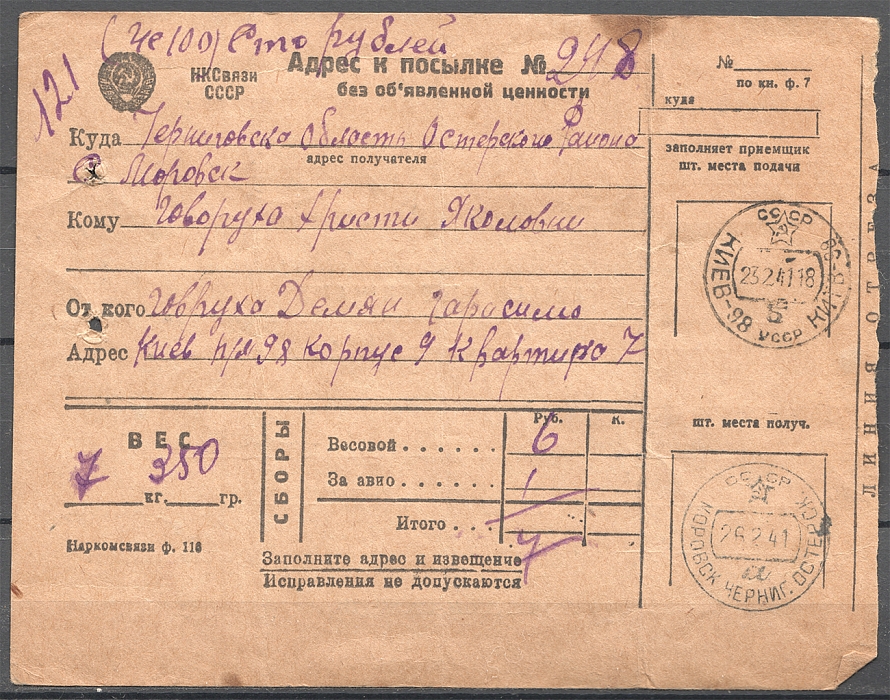 121
(Че 100) Сто рублей
НКСвязи
СССР
Адрес к посылке № 248
без об'явленной ценности
Куда Черниговска Область Остерского Района
адрес получателя
С Моровск
Кому Говоруха Христи Якомовни
От кого Говруха Демян Гарасимо
Адрес Киев п/я 98 корпус 9 квартира 7
ВЕС
7 350
кг. гр.
Наркомсвязи ф. 116
СБОРЫ
Руб. К.
Весовой . . . . . . 6
За авио . . . . . . 1
Итого . . . 7
Заполните адрес и извещение
Исправления не допускаются
№
по кн. ф. 7
куда
заполняет приемщик
шт. места подачи
СССР
КИЕВ-98 КИЇВ-98
23.2.41 18
Б
УССР
шт. места получ.
СССР
26.2.41
МОРОВСК ЧЕРНИГ. ОСТЕРСК
ЛИНИЯ ОТРЕЗА